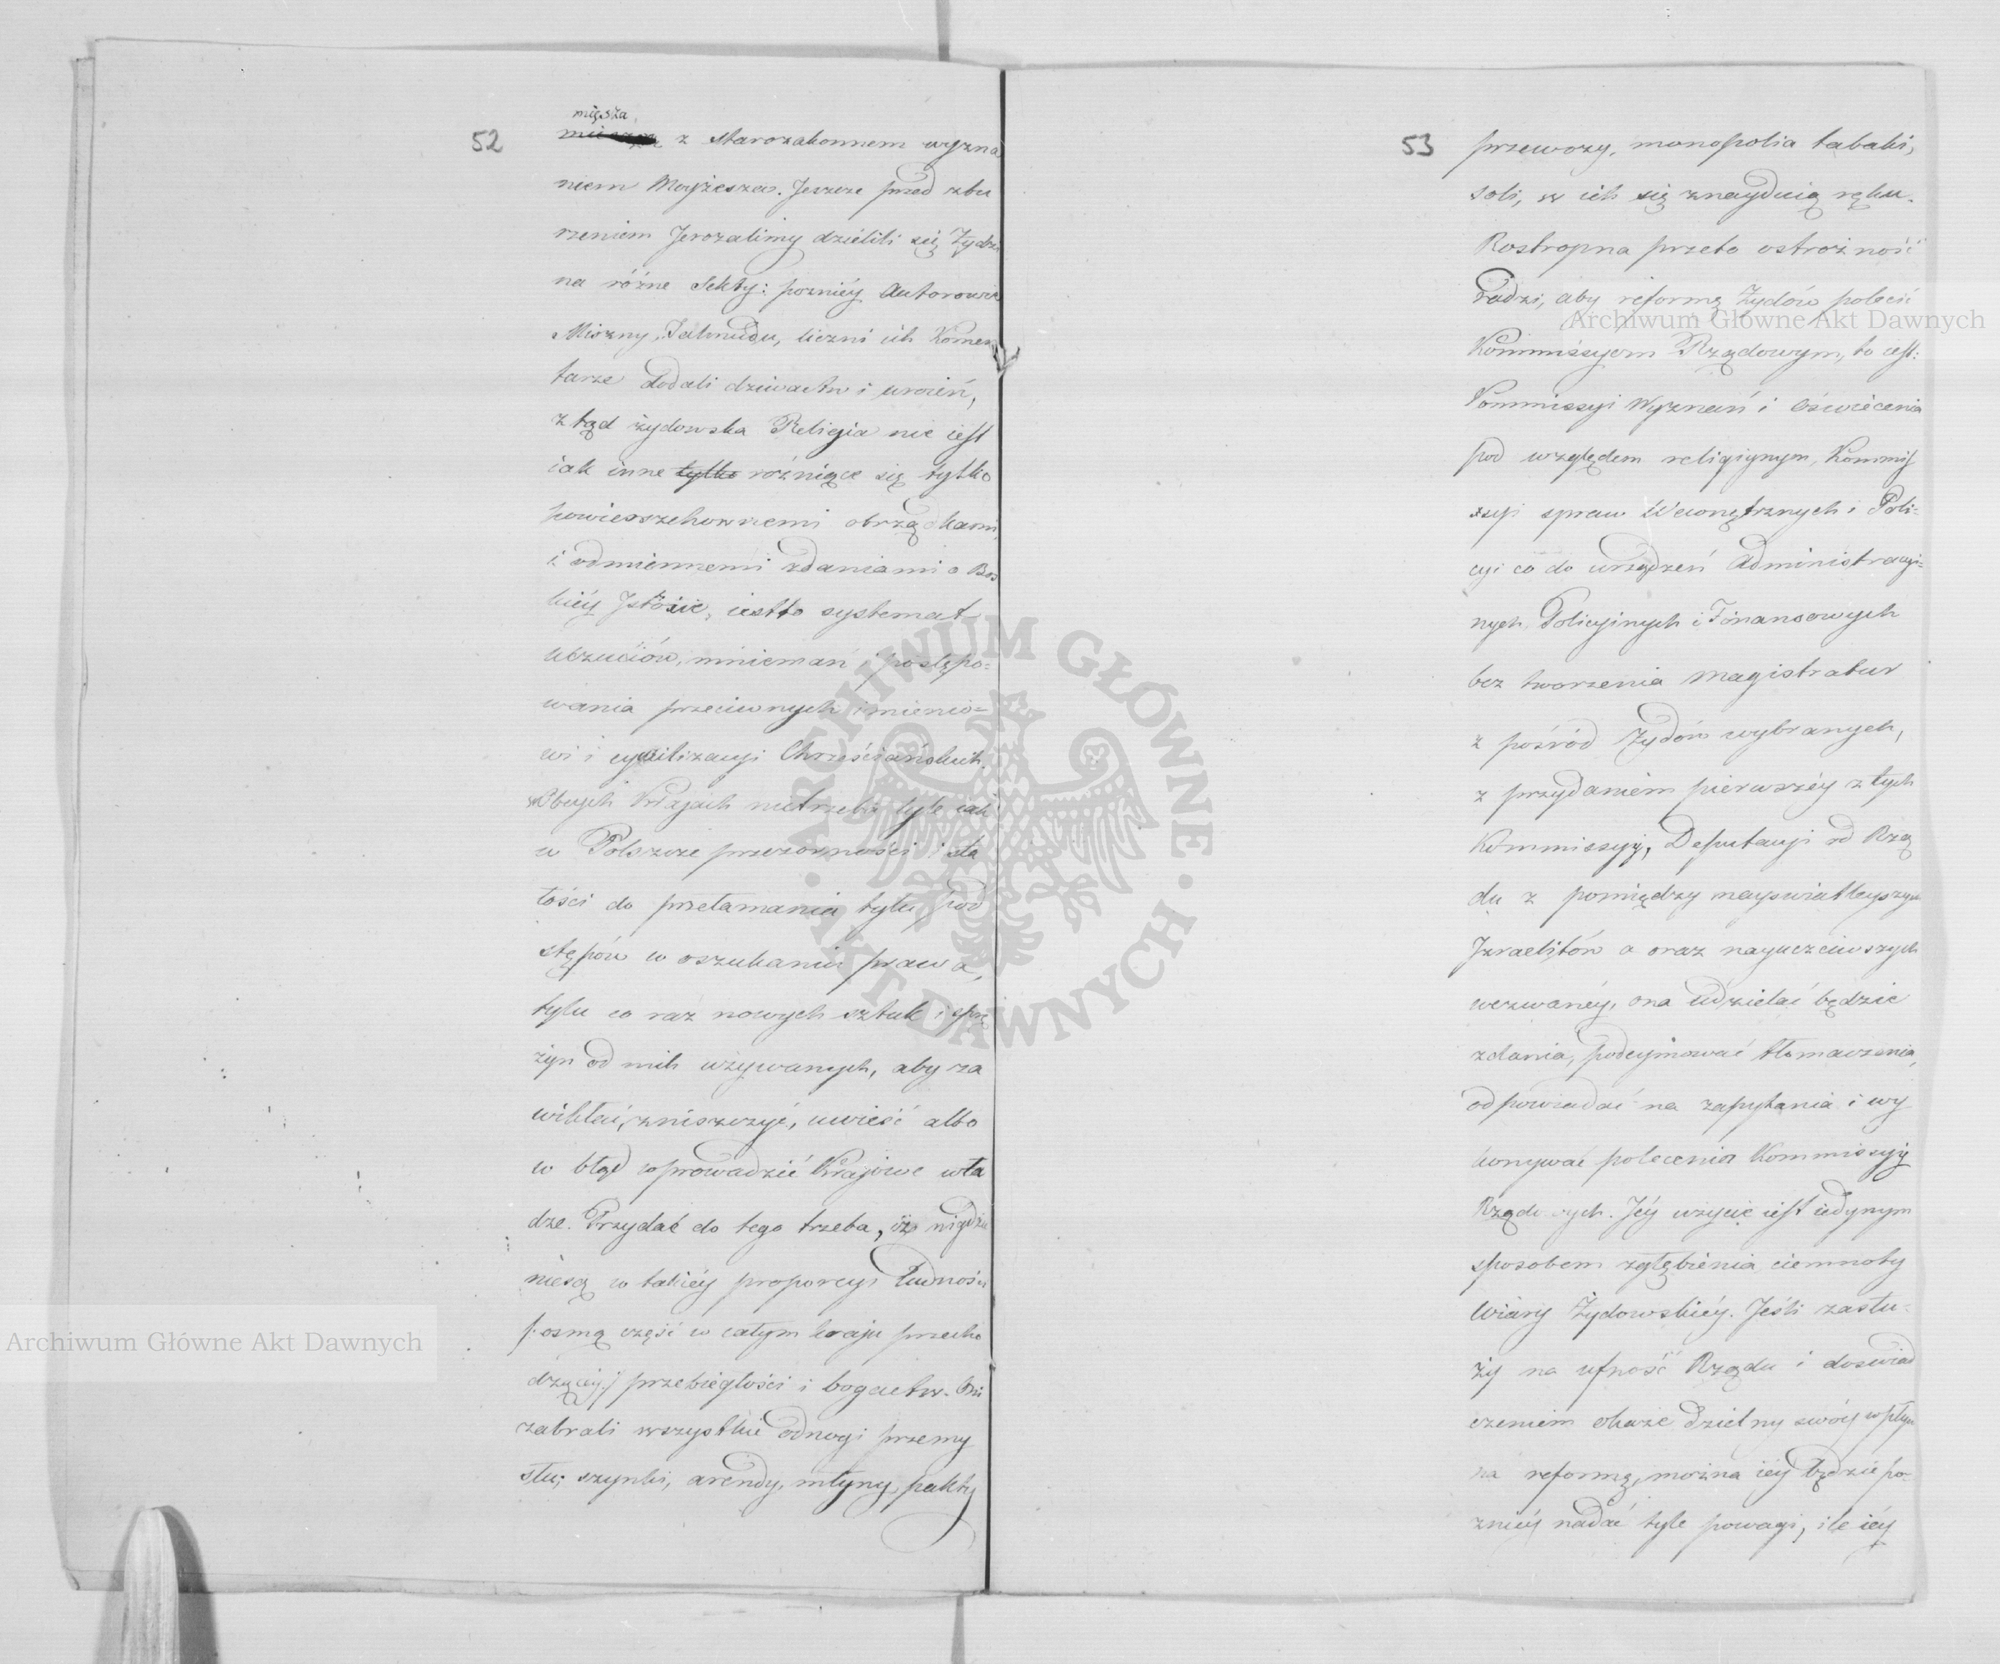 52
mięsza
z Starozakonnem wyzna
niem Mojżesza. Jeszcze przed zbu
rzeniem Jerozalimy dzielili się Żydzi
na różne Sekty: poźniéy Autorowie
Miszny, Talmudu, liczni ich Komen
tarze dodali dziwactw i uroień,
ztąd żydowska Religia nie iest
iak inne tylko rożniące się tylko
powierzchownemi obrządkami
i odmiennemi zdaniami o Bos
kiéy Istocie, iestto systemat
uczuciów, mniemań i postępo=
wania przeciwnych imienio=
wi i cywilizacyi Chrześciańskich.
w Obcych Krajach nietrzeba tyle iak
w Polszcze przezorności i sta
łości do przełamania tylu pod
stępów w oszukaniu prawa,
tylu co raz nowych sztuk i sprę
żyn od nich używanych, aby za
wikłać, zniszczyć, uwieść albo
w błąd wprowadzić Krajowe wła
dze. Przydać do tego trzeba, że nigdzie
niesą w takiéy proporcyi ludności
/: osmą część w całym kraju przecho
dzącéy :/ przebiegłości i bogactw. Oni
zabrali wszystkie odnogi przemy
słu; szynki, arendy, młyny, pakty
53
przewozy, monopolia tabaki,
soli, w ich się znayduią ręku.
Rostropna przeto ostrożność
radzi, aby reformę Żydów polecić
Kommissyom Rządowym, to iest:
Kommissyi Wyznań i Oświecenia
pod względem religiynym, Kommis
syi spraw Wewnętrznych i Poli=
cyi co do urządzeń Administracyi=
nych Policyinych i Finansowych
bez tworzenia Magistratur
z pośród Żydów wybranych,
z przydaniem pierwszéy z tych
Kommissyy, Deputacyi od Rzą
du z pomiędzy nayswiatleyszych
Izraelitów a oraz nayuczciwszych
wezwanéy, ona udzielać będzie
zdania, podeymować tłomaczenia,
odpowiadać na zapytania i wy
konywać polecenia Kommissyy
Rządowych. Jéy użycie iest iedynym
sposobem zgłębienia ciemnoty
Wiary Żydowskiéy. Jeśli zasłu-
ży na ufność Rządu i doswiad
czeniem okaże dzielny swóy wpływ
na reformę, można iéy będzie po-
zniéy nadać tyle powagi, ile iéy
Archiwum Główne Akt Dawnych
Archiwum Główne Akt Dawnych
ARCHIWUM GŁÓWNE · AKT DAWNYCH ·